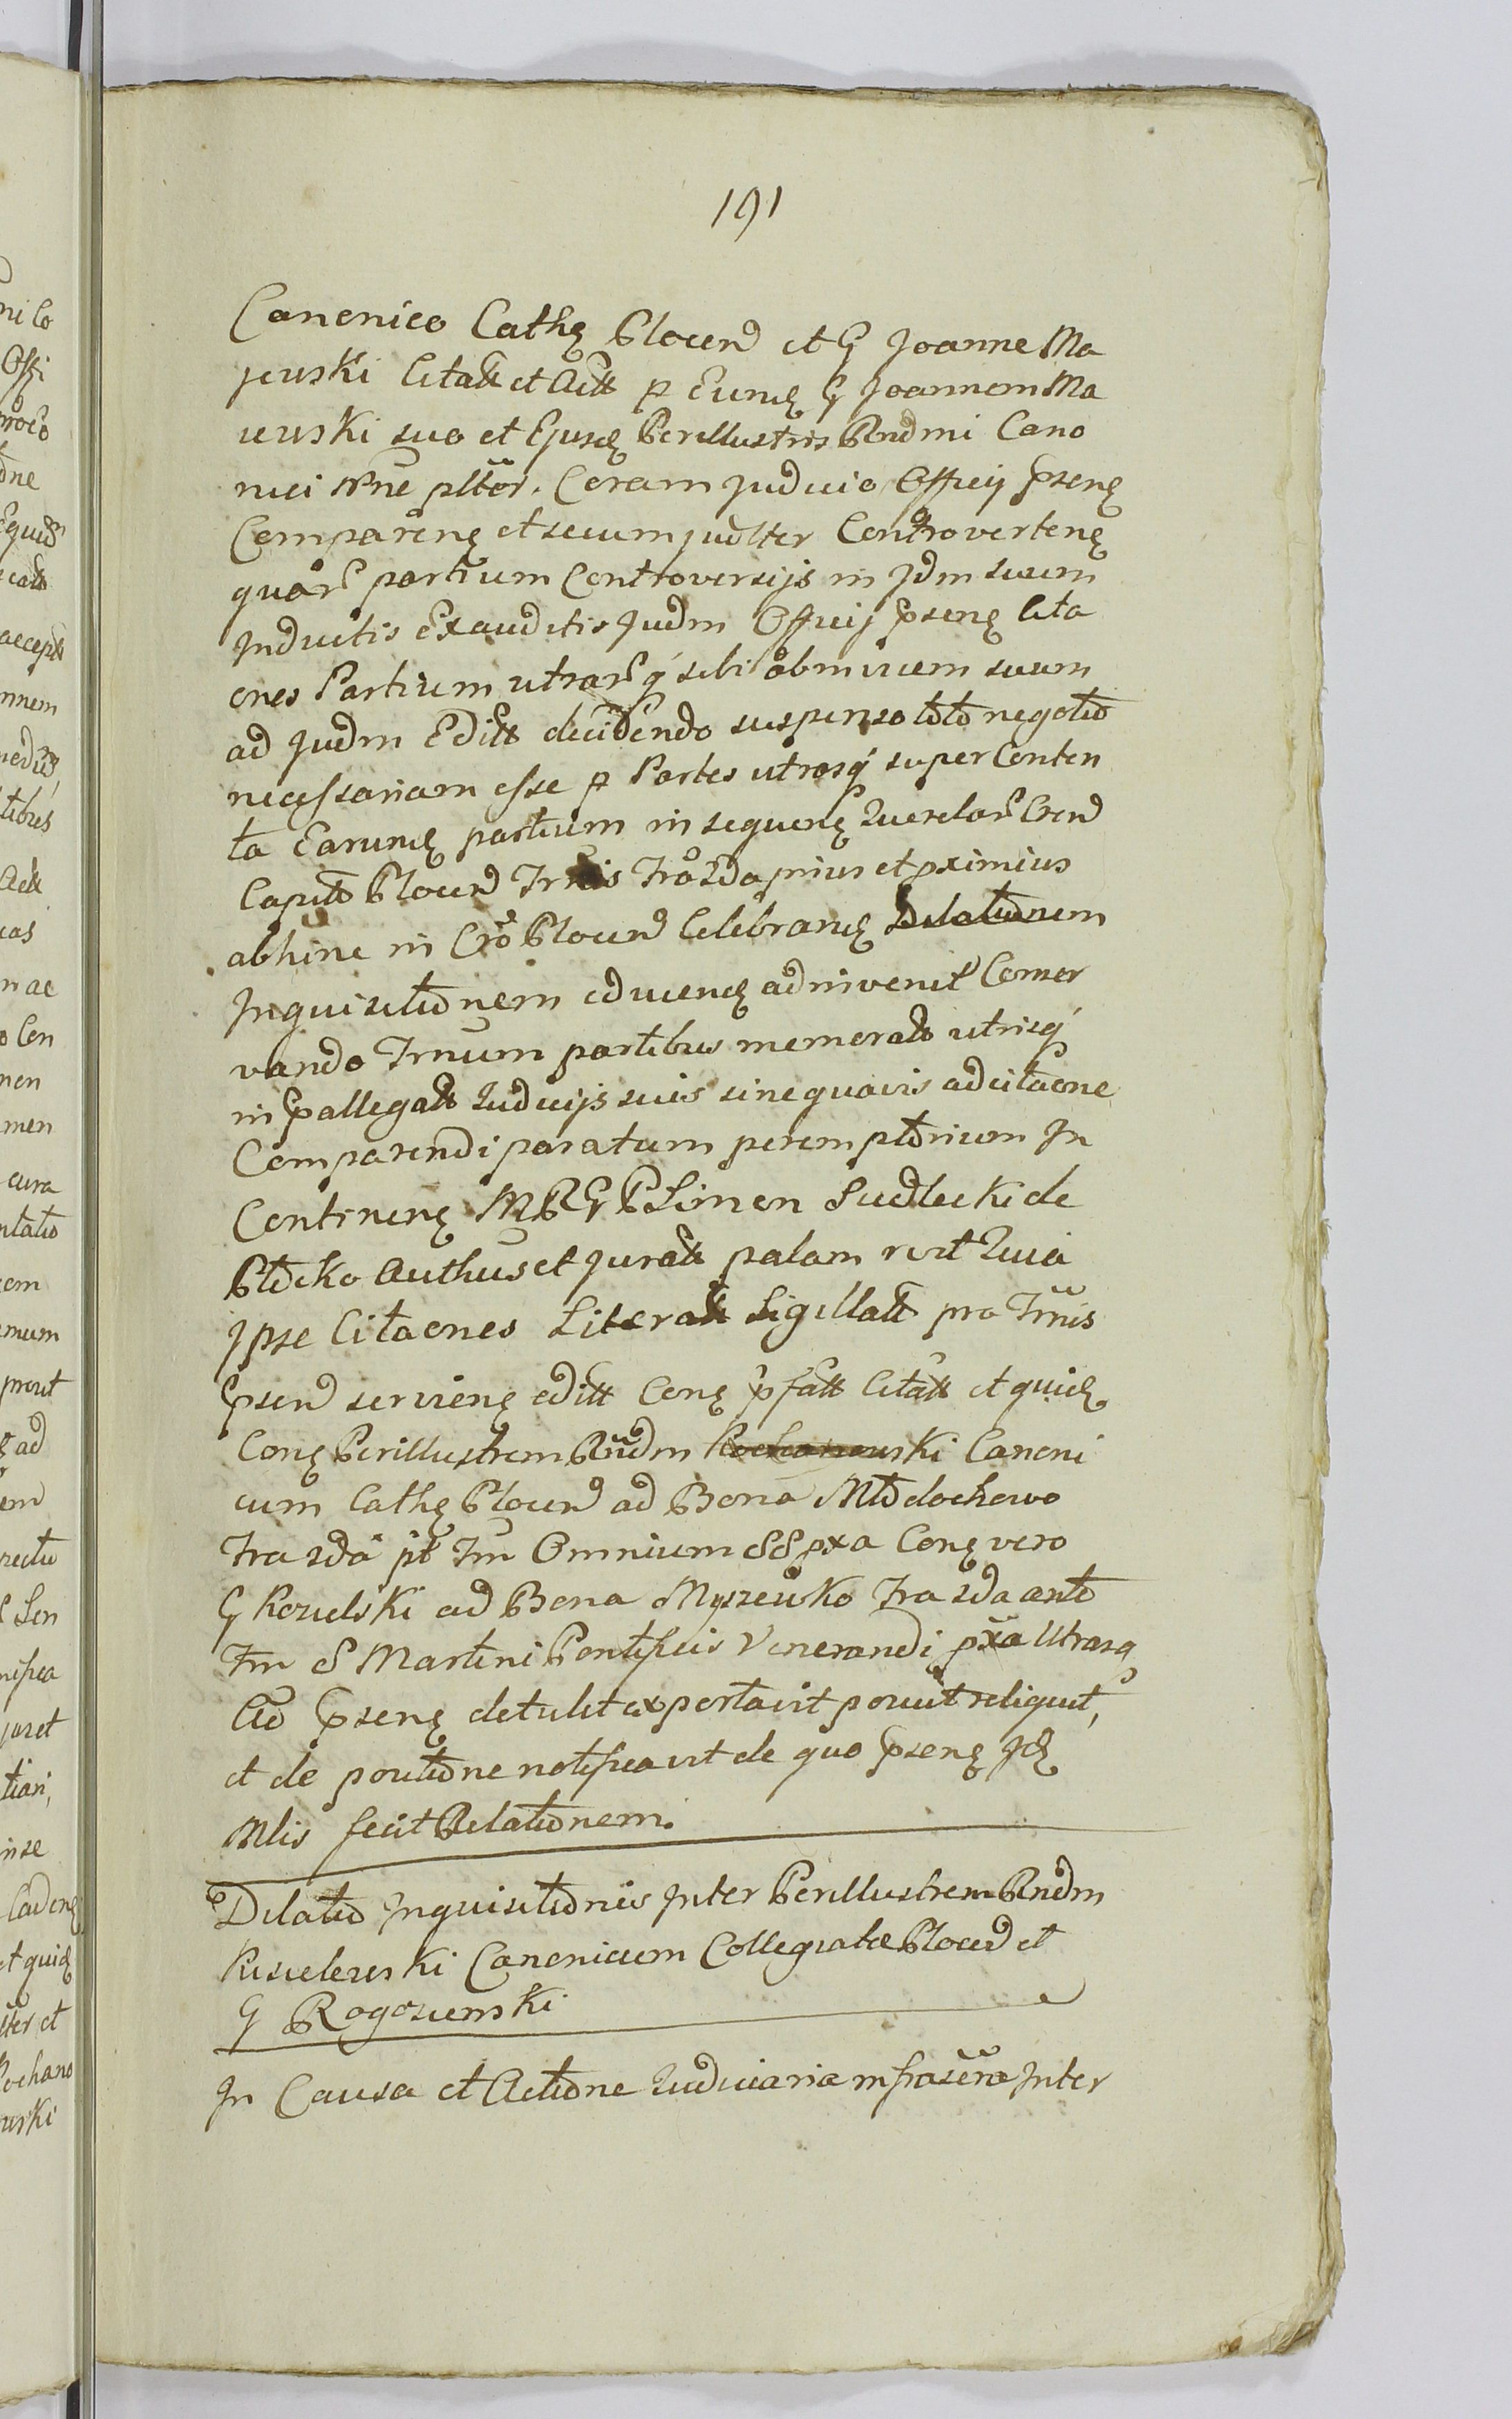 191
Canonico Cathę Plocen et G Joanne Ma
jewski Citatt et Actt p Eundę G Joannem Ma
jewski suo et Ejusdę Perillustris Rndmi Cano
nici Nne pltor. Coram Judicio Officij pseną
Comparenę et secum judlter Controvertenę
quar partium Controversijs in Jdm suum
Inductis Exauditis Judm Officij psenę Cita
ones Partium utrarq sibi obinvicem suum
ad Judm Editt decidendo suspenso toto negotio
necessariam esse p Partes utrasq super Conten
ta Earundę partium in sequenę Querelar Cren
Capitt Plocen Trnis Fra 2da prius et pximius
abhinc in Cro Plocen Celebrandę Dilationem
Inquisitionem educendę adinvenit Conser
vando Trnum partibus memoratt utrisq
in pallegatt Judicijs suis sine quavis adcitaone
Comparendi paratum peremptorium In
Continenę MRGP Simon Sudlecki de
Plocko Authus et Juratt palam rcrt Quia
Ipse Citaones Literatt Sigillatt pro Trnis
psen servienę editt Conę pfatt Citatt et quidę
Conę Perillustrem Rndm Kochanowski Canoni
cum Cathę Plocen ad Bona Młodochowo
Fra 2da pt Fm Omnium SS pxa Conę vero
G Kozielski ad Bona Myszewko Fra 2da ante
Fm S Martini Pontificis Venerandi pxa Utrasq
Ao psenę detulit exportavit posuit reliquit,
et de positione notificavit de quo psenę Jdę
Mlis fecit Relationem.
Dilatio Inquisitionis Inter Perillustrem Rndm
Kisielewski Canonicum Collegiatæ Plocen et
G Rogozienski
In Causa et Actione Judiciaria infrascrra Inter